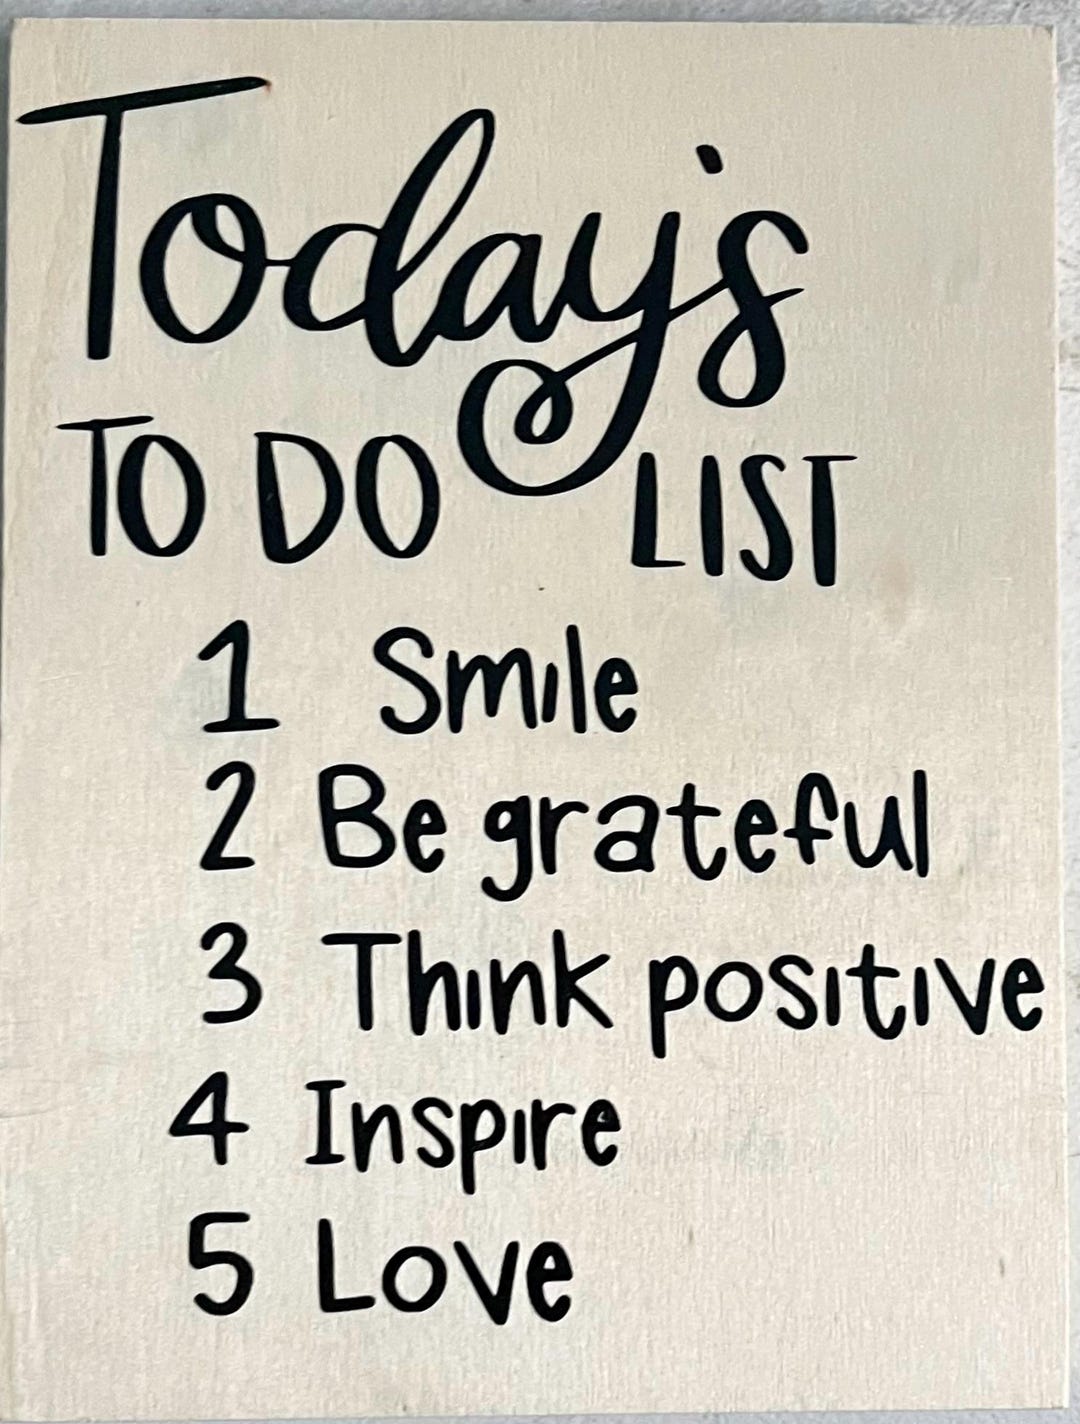 Today's
TO DO LIST
1 Smile
2 Be grateful
3 Think positive
4 Inspire
5 Love